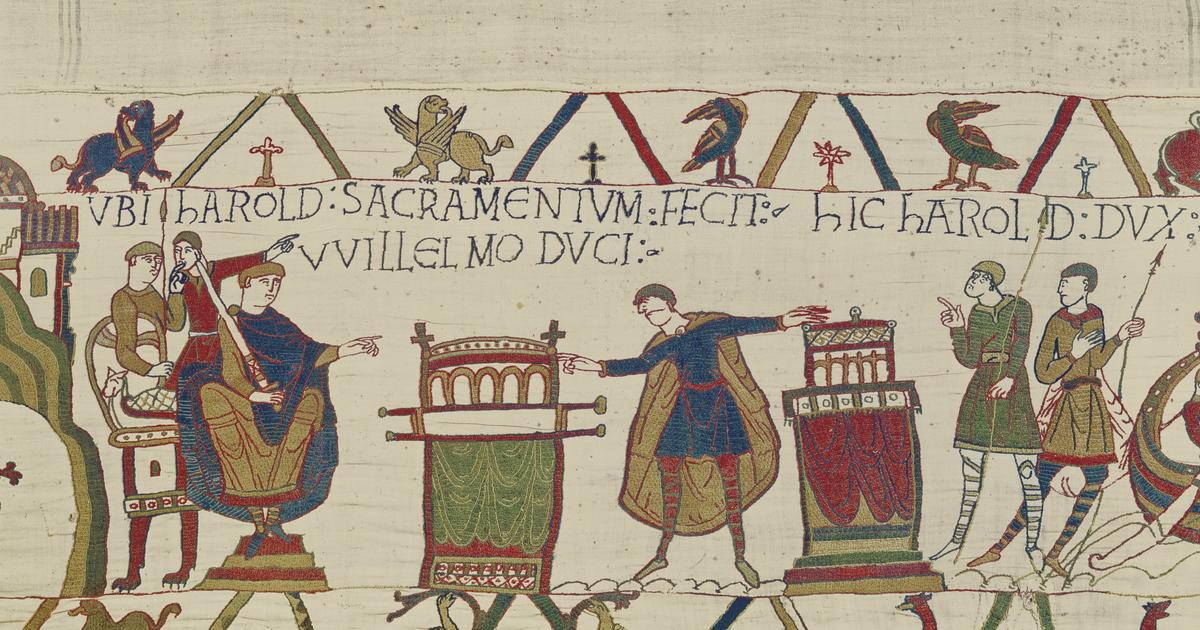 VBI hAROLD : SACRAMENTVM : FECIT : hIC hAROLD : DVX :
VVILLELMO DVCI :